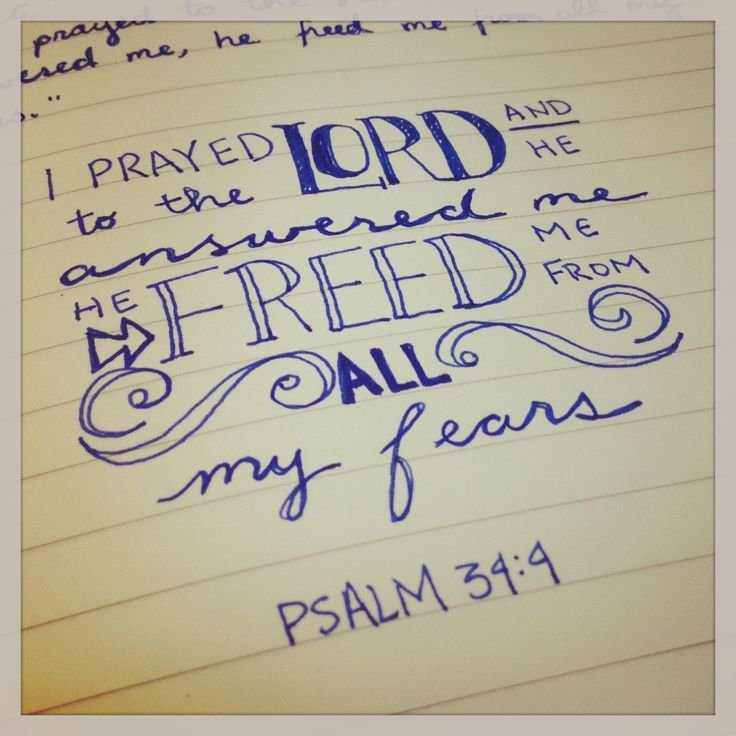 prayed to the
ered me, he freed me from all my
s."
I PRAYED LORD AND
to the HE
answered me
HE FREED ME
FROM
ALL
my fears
PSALM 34:4